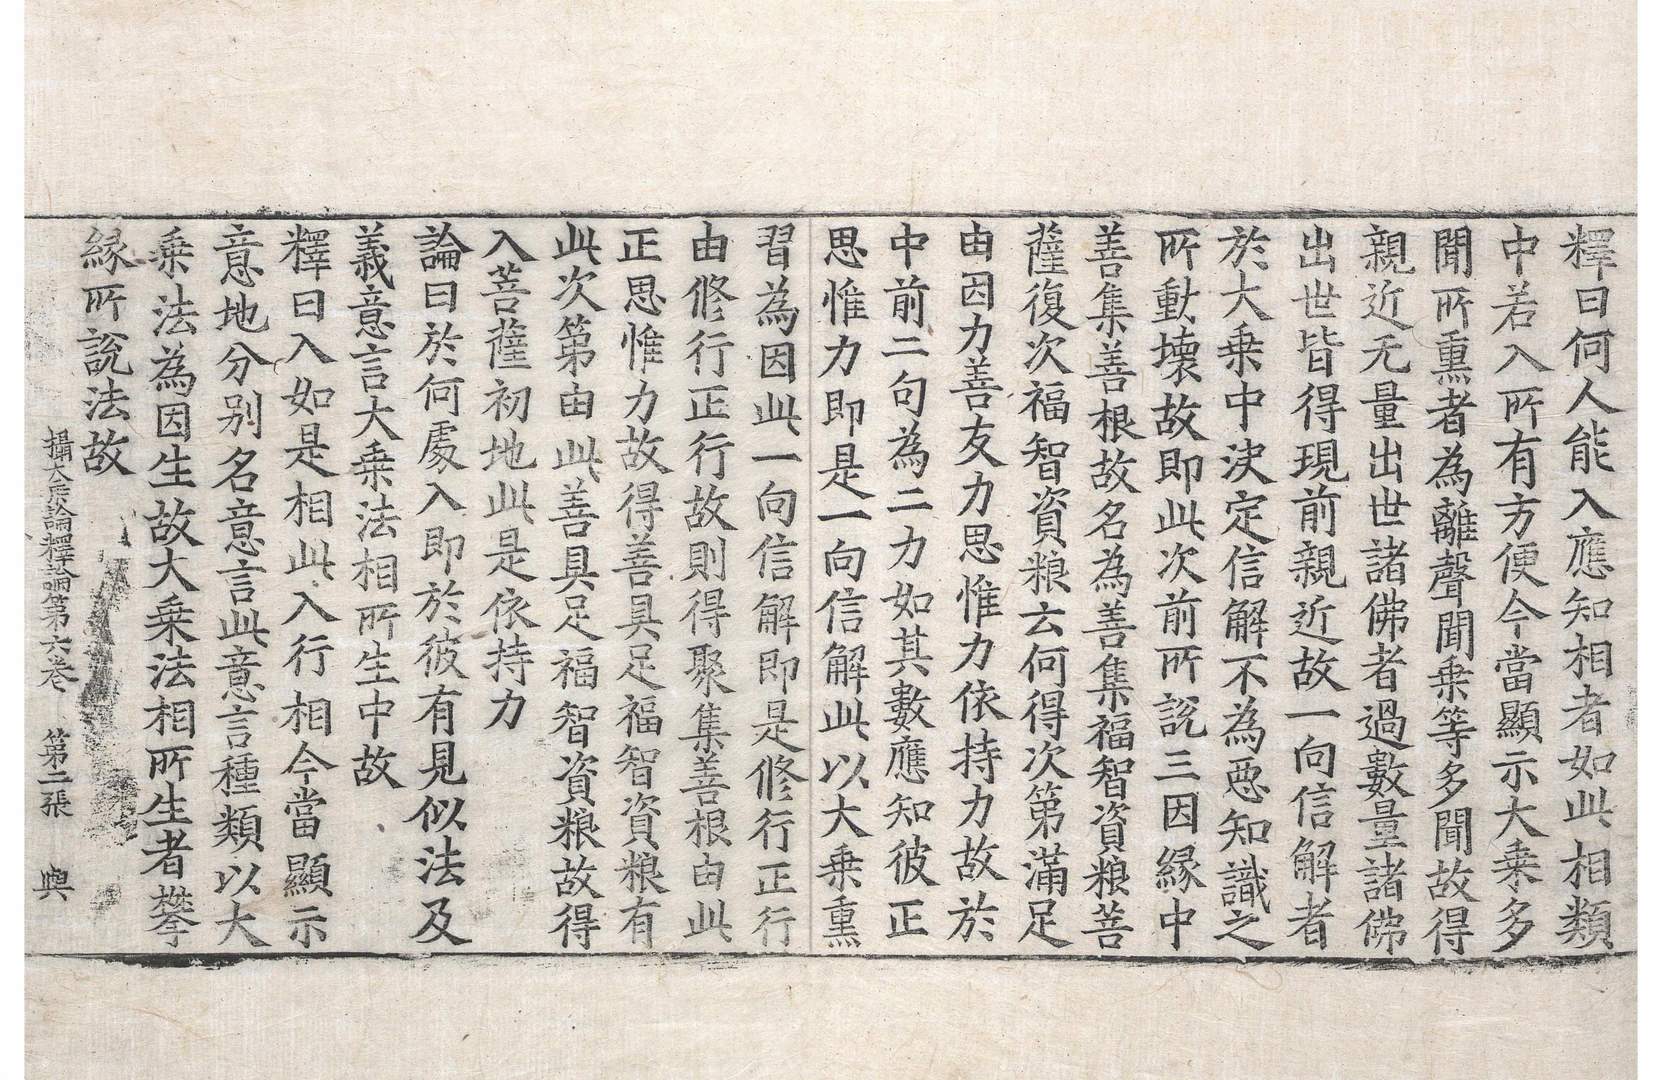 釋曰何人能入應知相者如此相類
中若入所有方便今當顯示大乗多
聞所熏者為離聲聞乗等多聞故得
親近无量出世諸佛者過數量諸佛
出世皆得現前親近故一向信解者
於大乗中决定信解不為惡知識之
所動壞故即此次前所說三因縁中
善集善根故名為善集福智資粮菩
薩復次福智資粮云何得次第滿足
由因力善友力思惟力依持力故於
中前二句為二力如其數應知彼正
思惟力即是一向信解此以大乗熏
習為因此一向信解即是修行正行
由修行正行故則得聚集善根由此
正思惟力故得善具足福智資粮有
此次第由此善具足福智資粮故得
入菩薩初地此是依持力
論曰於何處入即於彼有見似法及
義意言大乗法相所生中故
釋曰入如是相此入行相今當顯示
意地分别名意言此意言種類以大
乗法為因生故大乗法相所生者攀
縁所說法故
攝大乗論釋論第六卷　第二張　輿